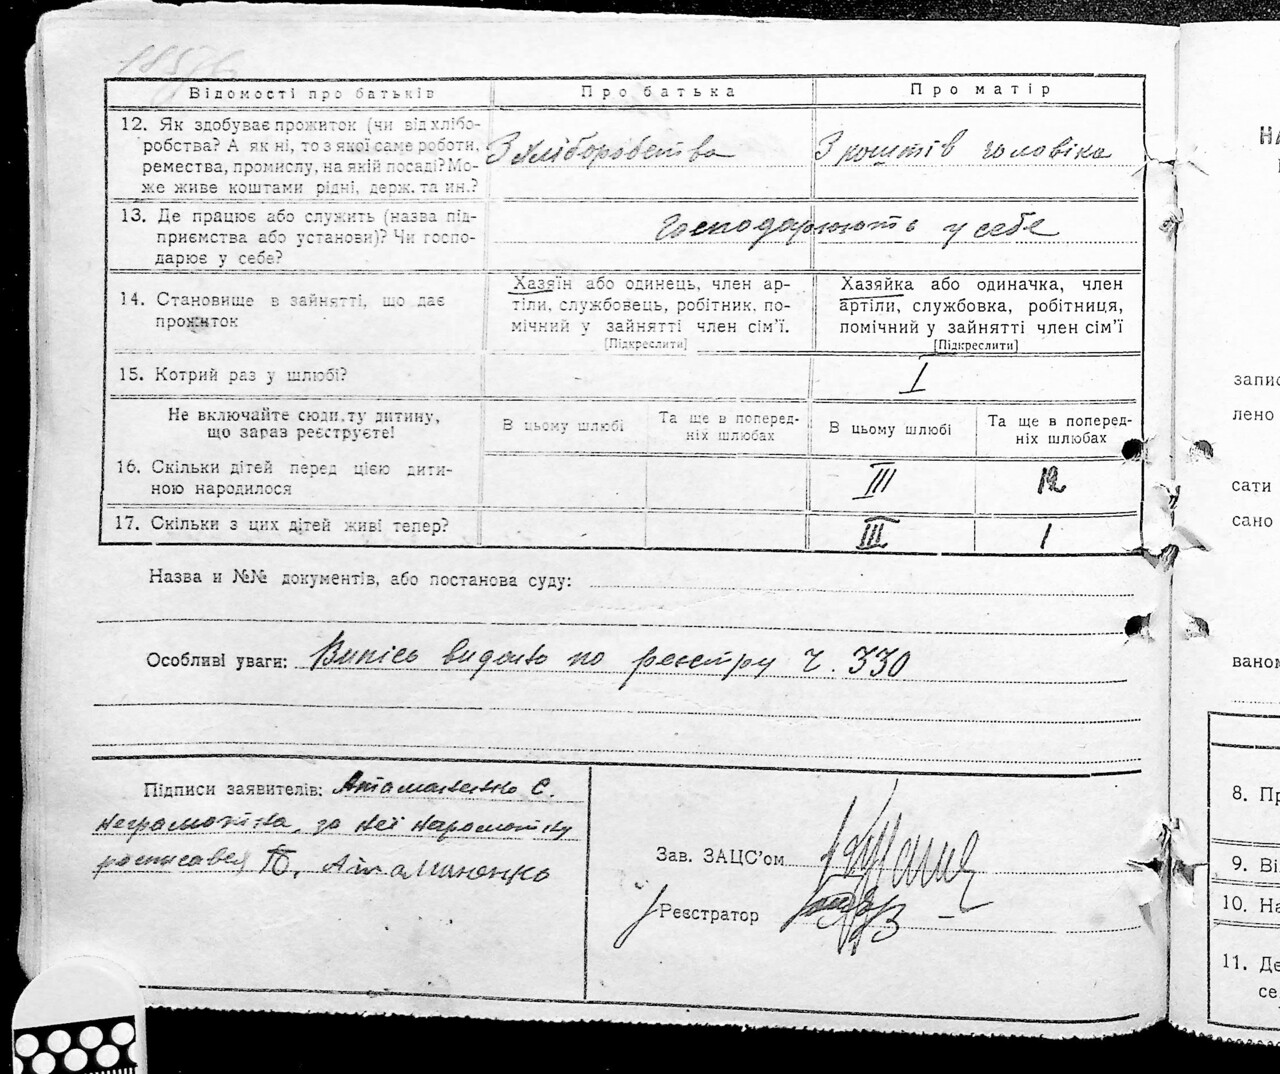 Відомості про батьків
Про батька
Про матір
12. Як здобуває прожиток (чи від хлібо-
робства? А як ні, то з якої саме роботи,
ремества, промислу, на якій посаді? Мо-
же живе коштами рідні, держ. та ин.?
З хліборобства
З коштів чоловіка
13. Де працює або служить (назва під-
приємства або установи)? Чи госпо-
дарює у себе?
Господарюють у себе
14. Становище в зайнятті, що дає
прожиток
Хазяїн або одинець, член ар-
тіли, службовець, робітник, по-
мічний у зайнятті член сім'ї.
[Підкреслити]
Хазяйка або одиначка, член
артіли, службовка, робітниця,
помічний у зайнятті член сім'ї
[Підкреслити]
15. Котрий раз у шлюбі?
I
Не включайте сюди ту дитину,
що зараз реєструєте!
В цьому шлюбі
Та ще в поперед-
ніх шлюбах
В цьому шлюбі
Та ще в поперед-
ніх шлюбах
16. Скільки дітей перед цією дити-
ною народилося
III
17. Скільки з цих дітей живі тепер?
III
1
Назва и №№ документів, або постанова суду:
Особливі уваги: Випись видано по реєстру ч. 330
Підписи заявителів: Атаманенко С.
неграмотна, за неї неграмотну
росписався Атаманенко
Зав. ЗАЦС'ом
Реєстратор
запис
лено
сати
сано
ваном
8. Пр
9. Ві
10. На
11. Де
се